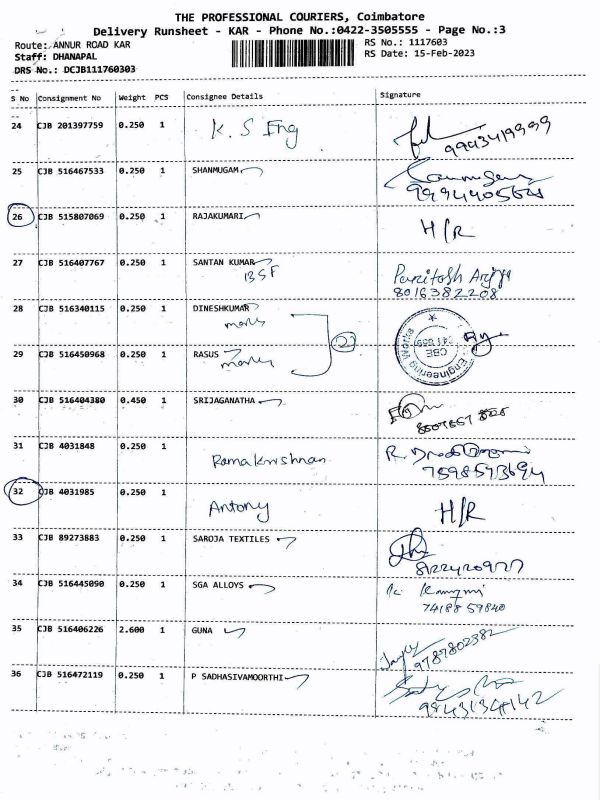 THE PROFESSIONAL COURIERS, Coimbatore
Delivery Runsheet - KAR - Phone No.:0422-3505555 - Page No.:3
Route: ANNUR ROAD KAR RS No.: 1117603
Staff: DHANAPAL RS Date: 15-Feb-2023
DRS No.: DCJB111760303
S No Consignment No Weight PCS Consignee Details Signature
24 CJB 201397759 0.250 1 K. S Eng
25 CJB 516467533 0.250 1 SHANMUGAM
26 CJB 515807069 0.250 1 RAJAKUMARI H/R
27 CJB 516407767 0.250 1 SANTAN KUMAR
BSF
8016382208
28 CJB 516340115 0.250 1 DINESHKUMAR
29 CJB 516450968 0.250 1 RASUS
2
Engineering Works
CBE
30 CJB 516404380 0.450 1 SRIJAGANATHA
31 CJB 4031848 0.250 1 Ramakrishnan
7598573694
32 CJB 4031985 0.250 1 Antony H/R
33 CJB 89273883 0.250 1 SAROJA TEXTILES
34 CJB 516445090 0.250 1 SGA ALLOYS
74188 59840
35 CJB 516406226 2.600 1 GUNA
9787802382
36 CJB 516472119 0.250 1 P SADHASIVAMOORTHI
9843134142